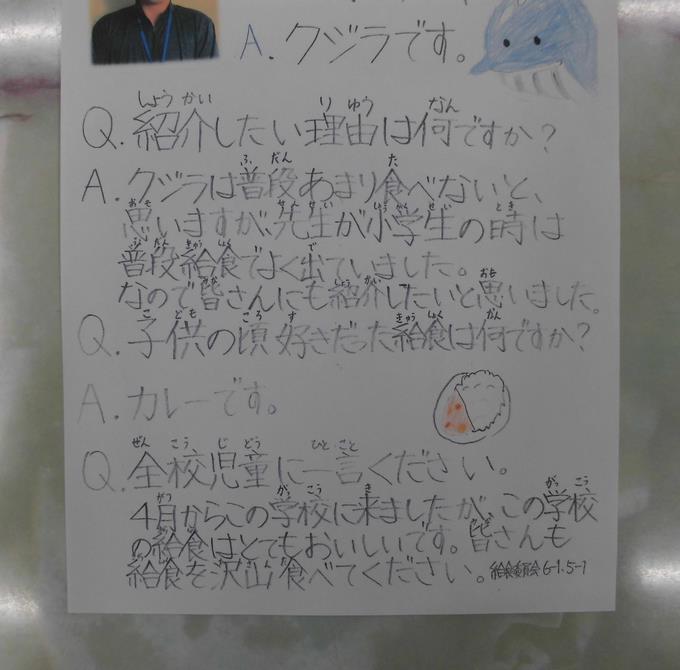 A.クジラです。
Q.紹介したい理由は何ですか?
A.クジラは普段あまり食べないと、
思いますが、先生が小学生の時は
普段給食でよく出ていました。
なので皆さんにも紹介したいと思いました。
Q.子供の頃好きだった給食は何ですか?
A.カレーです。
Q.全校児童に一言ください。
4月からこの学校に来ましたが、この学校
の給食はとてもおいしいです。皆さんも
給食を沢山食べてください。給食委員会6-1.5-1